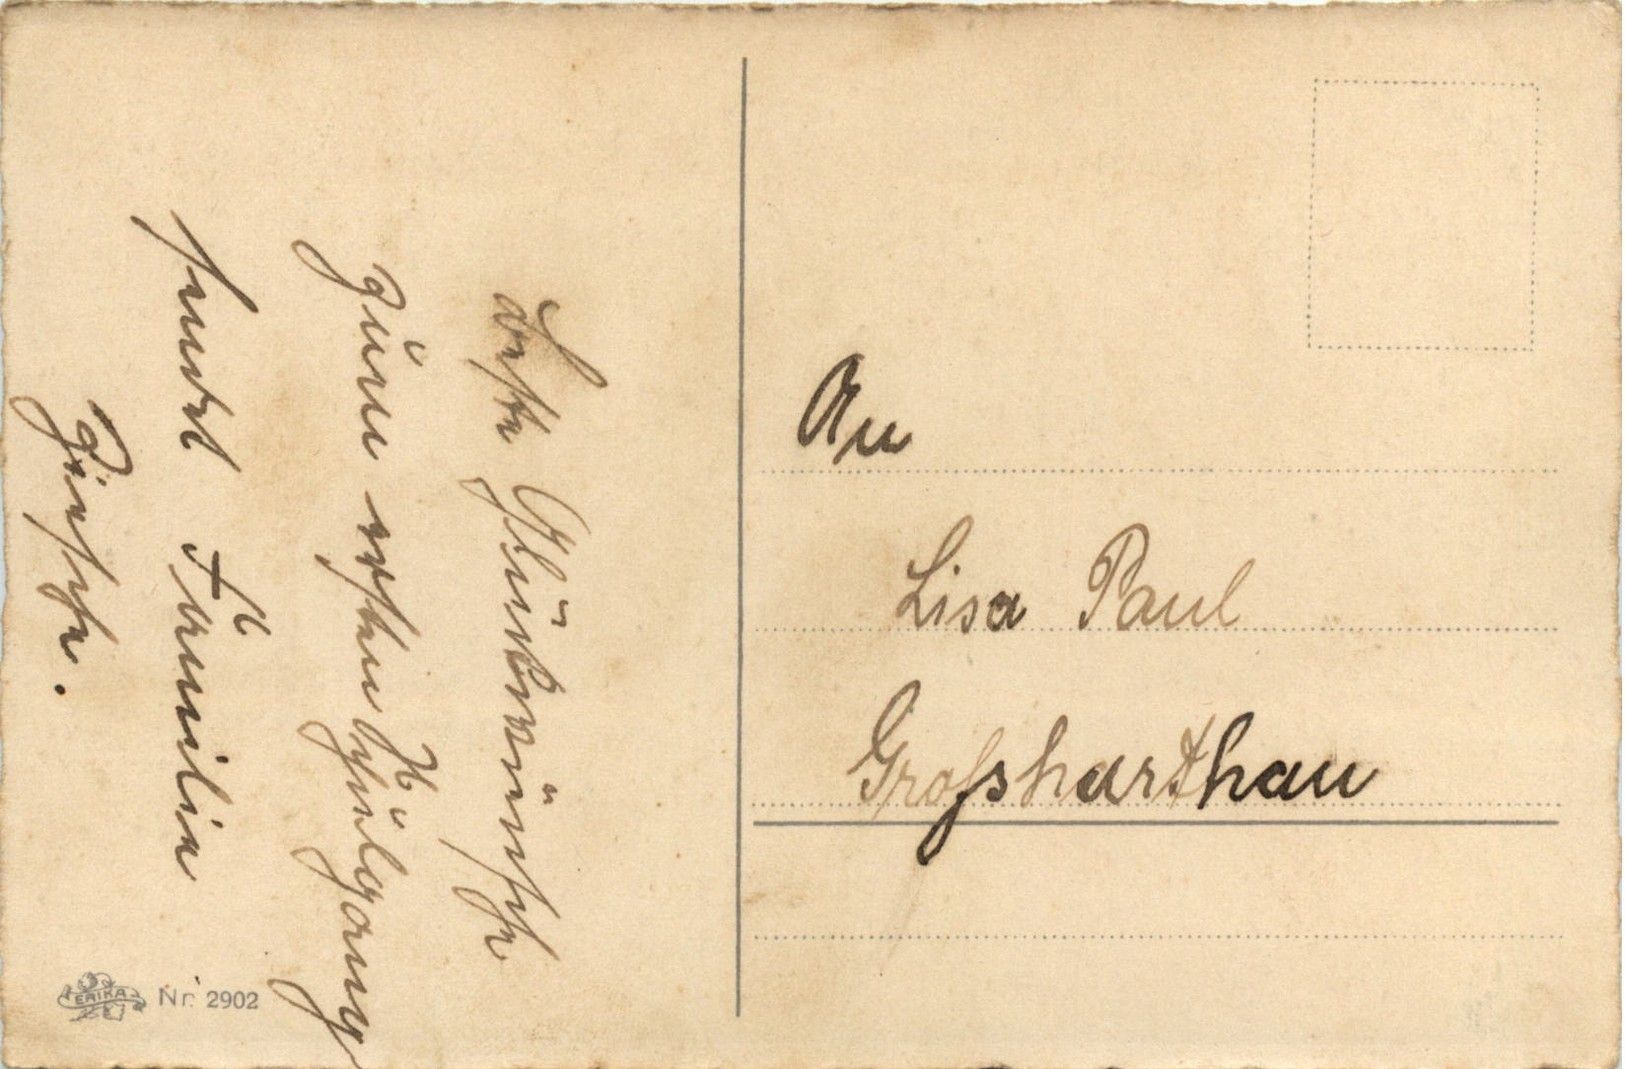 Beste Glückwünsche
zum ersten Schulgang
sendet Familie
An
Lisa Paul
Großharthau
ERIKA Nr. 2902